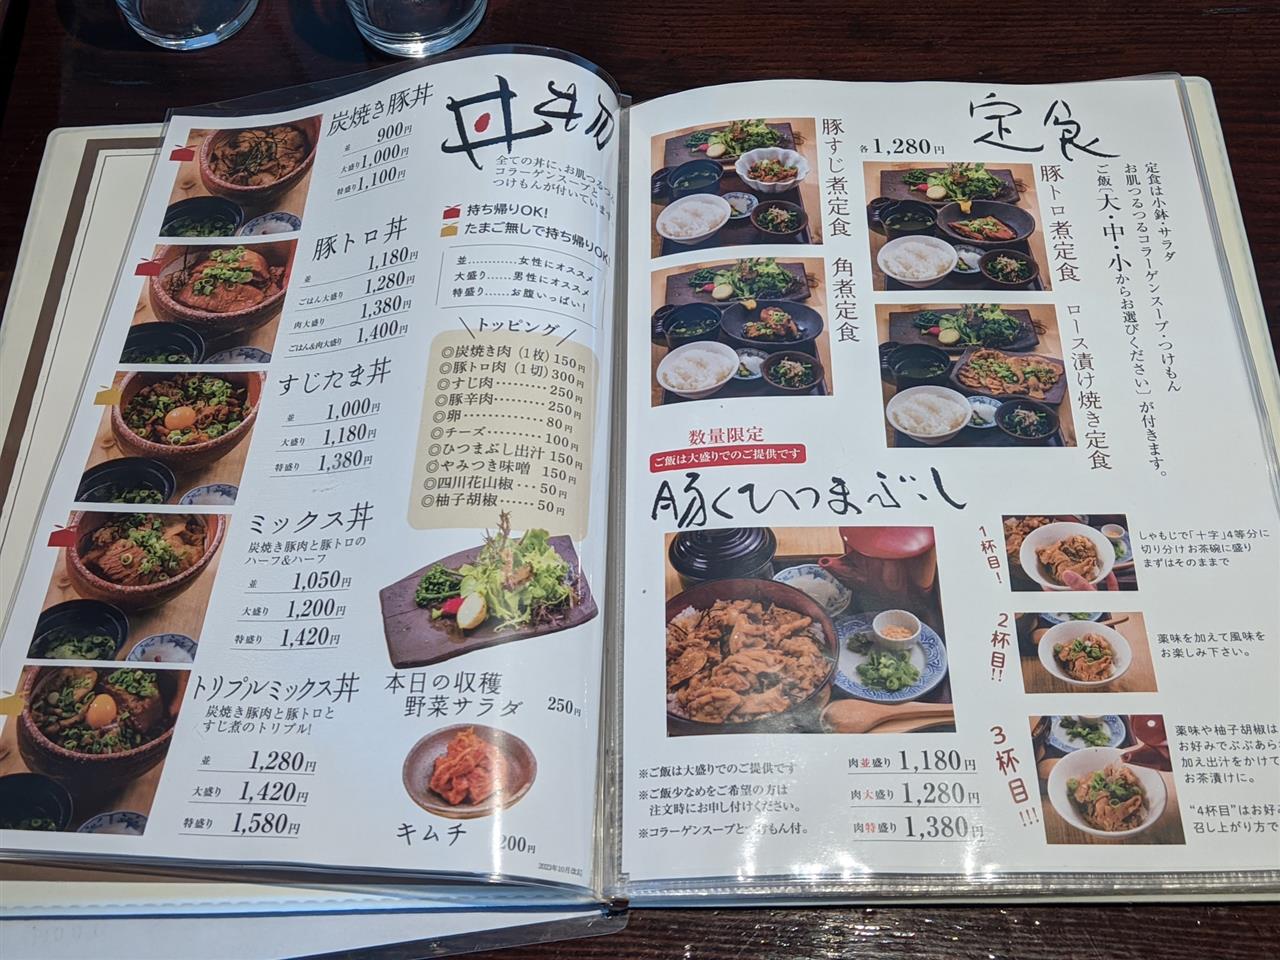 丼
炭焼き豚丼
並 900円
大盛り 1,000円
特盛り 1,100円
豚トロ丼
並 1,180円
ごはん大盛り 1,280円
肉大盛り 1,380円
ごはん&肉大盛り 1,400円
すじたま丼
並 1,000円
大盛り 1,180円
特盛り 1,380円
ミックス丼
炭焼き豚肉と豚トロの
ハーフ&ハーフ
並 1,050円
大盛り 1,200円
特盛り 1,420円
トリプルミックス丼
炭焼き豚肉と豚トロと
すじ煮のトリプル!
並 1,280円
大盛り 1,420円
特盛り 1,580円
全ての丼に、お肌つるつる
コラーゲンスープと
つけもんが付いています
持ち帰りOK!
たまご無しで持ち帰りOK!
並…………女性にオススメ
大盛り……男性にオススメ
特盛り……お腹いっぱい!
トッピング
◎炭焼き肉(1枚)150円
◎豚トロ肉(1切)300円
◎すじ肉………250円
◎豚辛肉………250円
◎卵……………80円
◎チーズ………100円
◎ひつまぶし出汁 150円
◎やみつき味噌 150円
◎四川花山椒…50円
◎柚子胡椒……50円
本日の収穫
野菜サラダ 250円
キムチ 200円
2023年10月改訂
定食
各1,280円
豚すじ煮定食
角煮定食
豚トロ煮定食
ロース漬け焼き定食
定食は小鉢・サラダ
お肌つるつるコラーゲンスープ・つけもん
ご飯〔大・中・小からお選びください〕が付きます。
数量限定
ご飯は大盛りでのご提供です
豚くひつまぶし
※ご飯は大盛りでのご提供です
※ご飯少なめをご希望の方は
注文時にお申し付けください。
※コラーゲンスープとつけもん付。
肉並盛り 1,180円
肉大盛り 1,280円
肉特盛り 1,380円
1杯目!
しゃもじで「十字」4等分に
切り分けお茶碗に盛り
まずはそのままで
2杯目!!
薬味を加えて風味を
お楽しみ下さい。
3杯目!!!
薬味や柚子胡椒は
お好みでぶぶあら
加え出汁をかけて
お茶漬けに。
“4杯目”はお好み
召し上がり方で